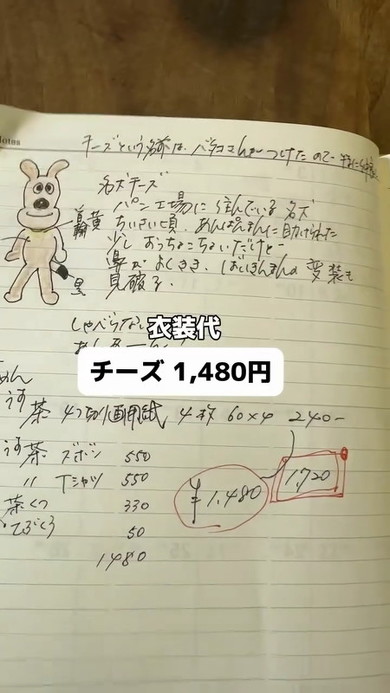 Notes
チーズという名前は、バタコさんがつけたので
名犬チーズ
パン工場に住んでいる名犬
ちいさい頃、あんぱんまんに助けられた
少しおっちょこちょいだけど
鼻がよくきき、ばいきんまんの変装も
見破る。
黄
黒
しゃべらない
衣装代
チーズ 1,480円
うす茶 4つ切り画用紙 4枚 60×4 240-
うす茶 ズボン 550
〃 Tシャツ 550
茶 くつ 330
てぶくろ 50
1480
¥1.480
1,720